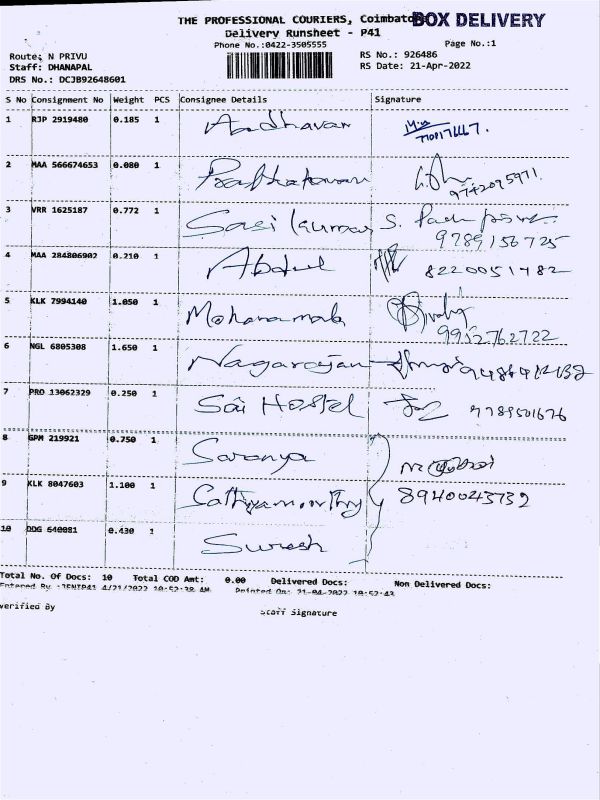 THE PROFESSIONAL COURIERS, Coimbato
BOX DELIVERY
Delivery Runsheet - P41
Phone No.:0422-3505555
Page No.:1
Route: N PRIVU
RS No.: 926486
Staff: DHANAPAL
RS Date: 21-Apr-2022
DRS No.: DCJB92648601
S No Consignment No Weight PCS Consignee Details Signature
1 RJP 2919480 0.185 1 Aadhavan
2 MAA 566674653 0.080 1 Prabhakaran 9742095971
3 VRR 1625187 0.772 1 Sasi kumar S.
9789156725
4 MAA 284806902 0.210 1 Abdul 8220051482
5 KLK 7994140 1.050 1 Mohanamala
9952762722
6 NGL 6805308 1.650 1 Nagarajan
7 PRO 13062329 0.250 1 Sai Hostel 9789501676
8 GPM 219921 0.750 1 Saranya
9 KLK 8047603 1.100 1 Sathyamoorthy 8940043732
10 DDG 640081 0.430 1 Suresh
Total No. Of Docs: 10 Total COD Amt: 0.00 Delivered Docs: Non Delivered Docs:
Entered By :JENIP41 4/21/2022 10:52:38 AM Printed On: 21-04-2022 10:52:43
verified By
Staff Signature